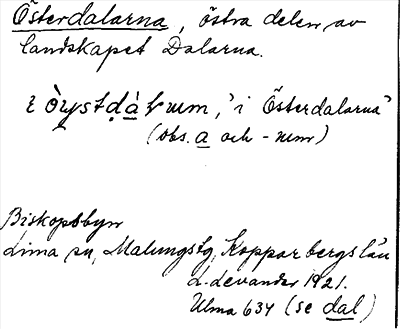 Österdalarna, östra delen av
landskapet Dalarna.
i òystdàrnum, 'i Österdalarna'
(obs. a och -num)
Biskopsbyn
Lima sn, Malungs tg, Kopparbergs län
L. Levander 1921.
Ulma 634 (se dal)